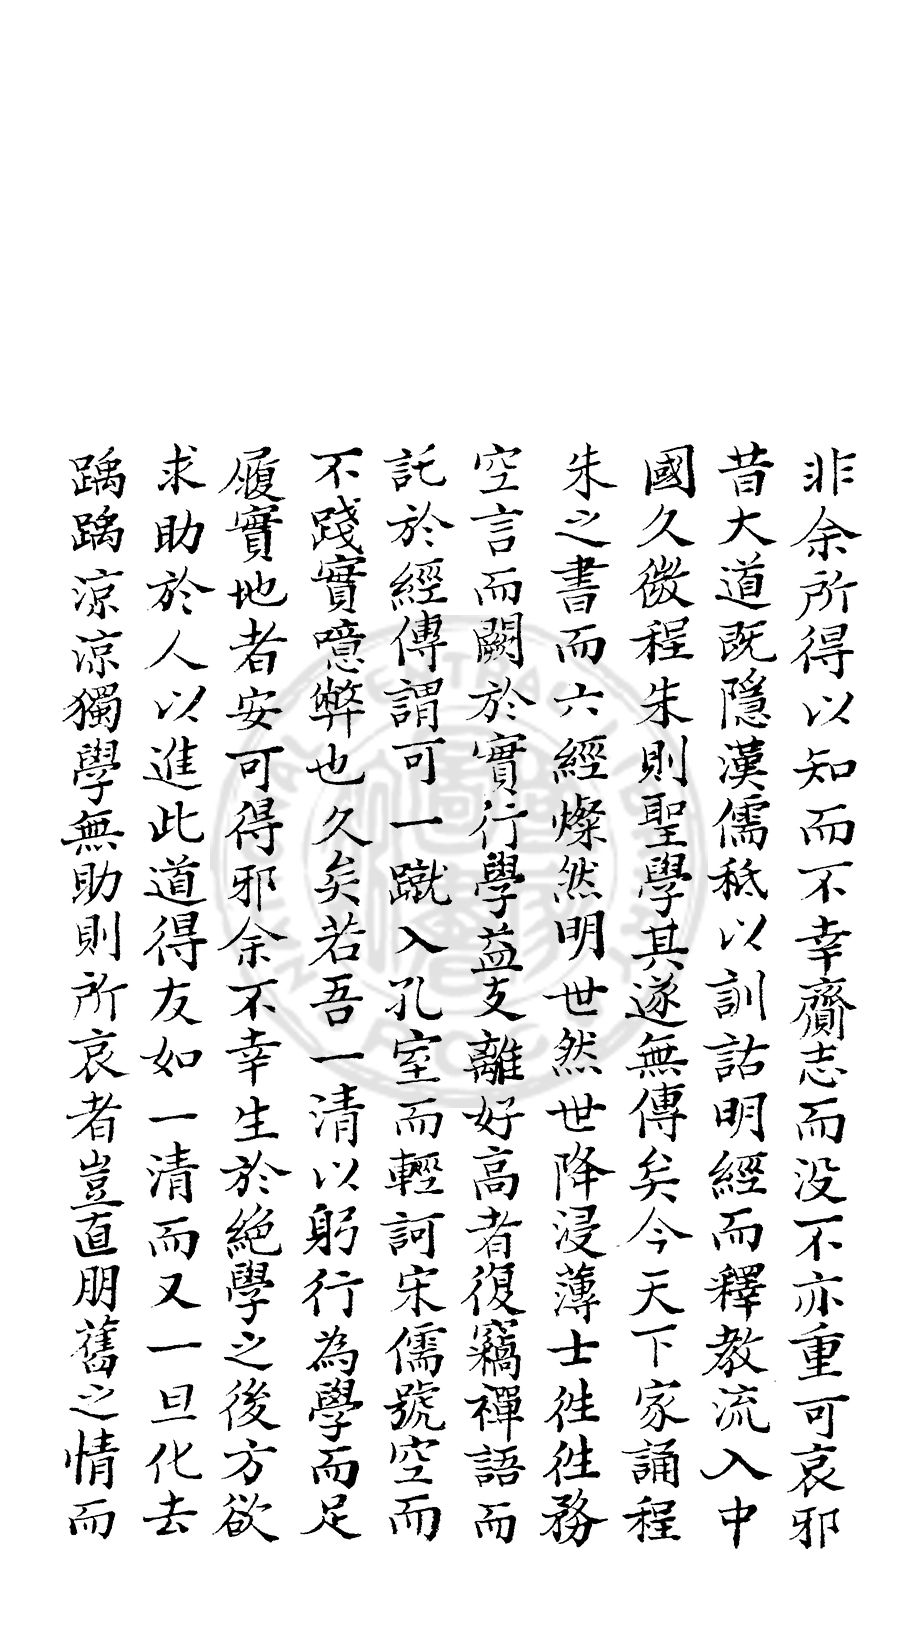 非余所得以知而不幸齎志而没不亦重可哀邪
昔大道既隱漢儒秪以訓詁明經而釋教流入中
國久微程朱則聖學其遂無傳矣今天下家誦程
朱之書而六經燦然明世然世降浸薄士徃徃務
空言而闕於實行學益支離好高者復竊禪語而
託於經傳謂可一蹴入孔室而輕訶宋儒號空而
不踐實噫弊也久矣若吾一清以躬行為學而足
履實地者安可得邪余不幸生於絕學之後方欲
求助於人以進此道得友如一清而又一旦化去
踽踽凉凉獨學無助則所哀者豈直朋舊之情而